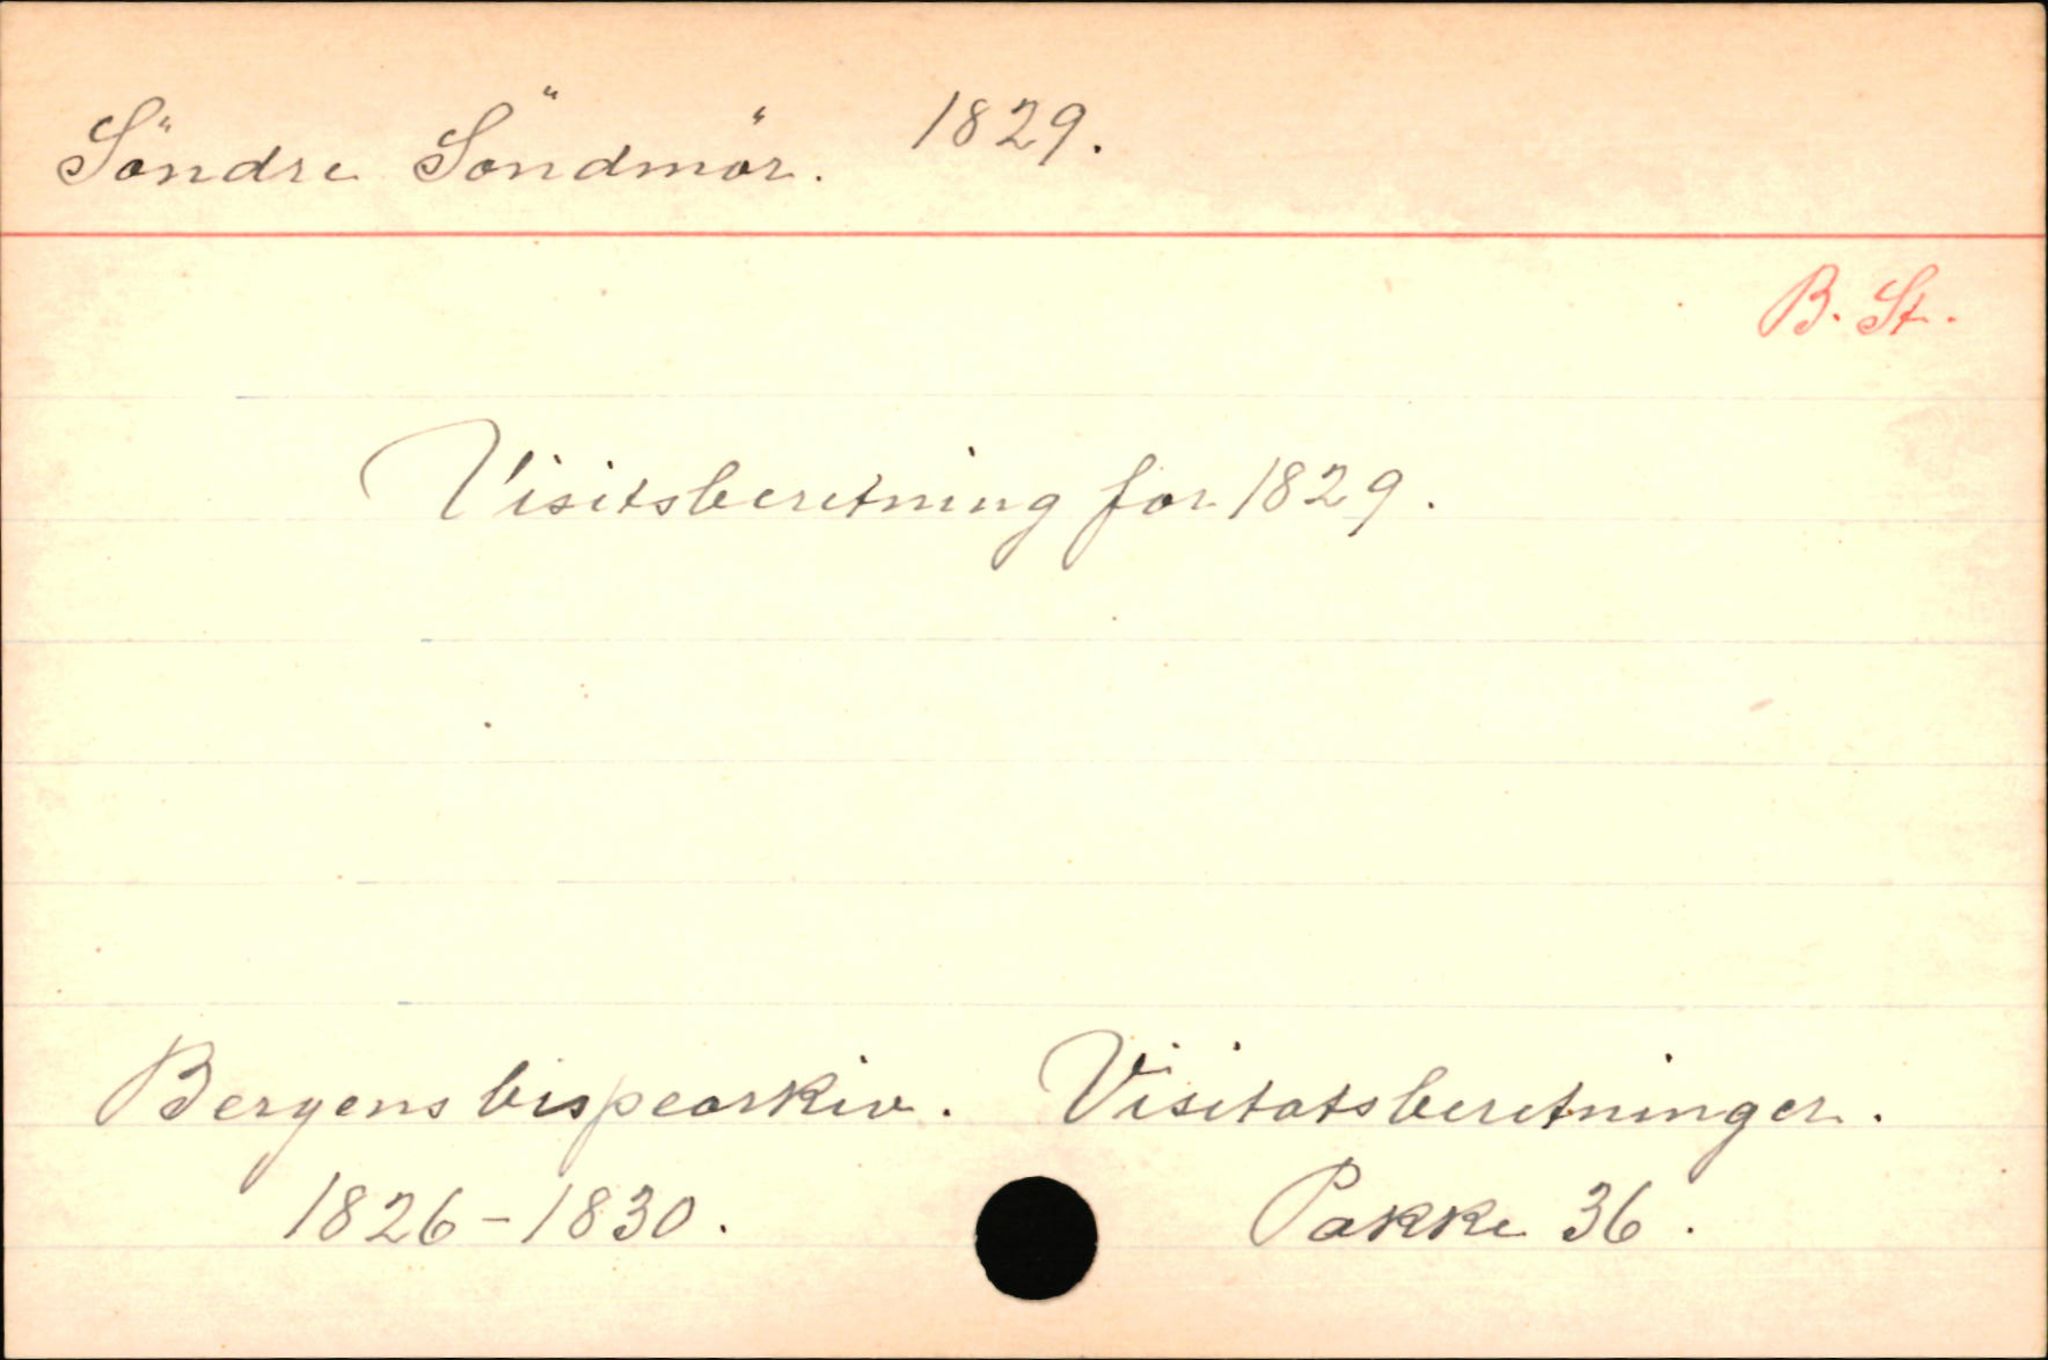 Söndre Söndmör. 1829.
B. St.
Visitsberetning for 1829.
Bergens bispearkiv. Visitatsberetninger.
1826-1830. Pakke 36.